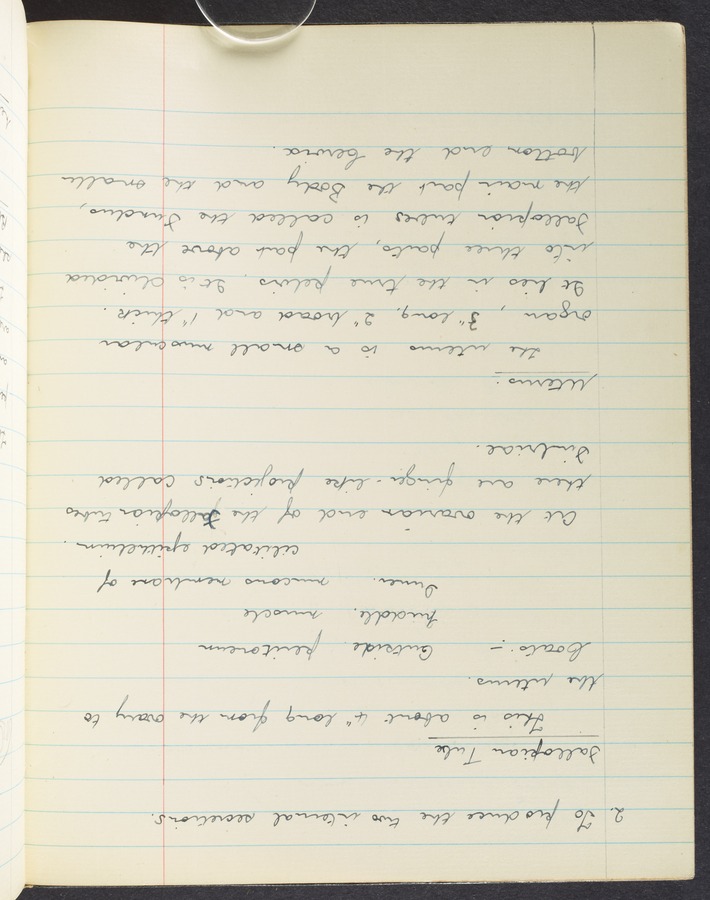 2. To produce the two internal secretions.
Fallopian Tube
This is about 4" long from the ovary to
the uterus.
Coats :- Outside. peritoneum
Middle. muscle
Inner. mucous membrane of
ciliated epithelium.
At the ovarian end of the fallopian tubes
there are finger-like projections called
Fimbriae.
Uterus:
the uterus is a small muscular
organ, 3" long, 2" broad and 1" thick.
It lies in the true pelvis. It is divided
into three parts, the part above the
Fallopian tubes is called the Fundus,
the main part the Body and the smaller
bottom end the Cervix.